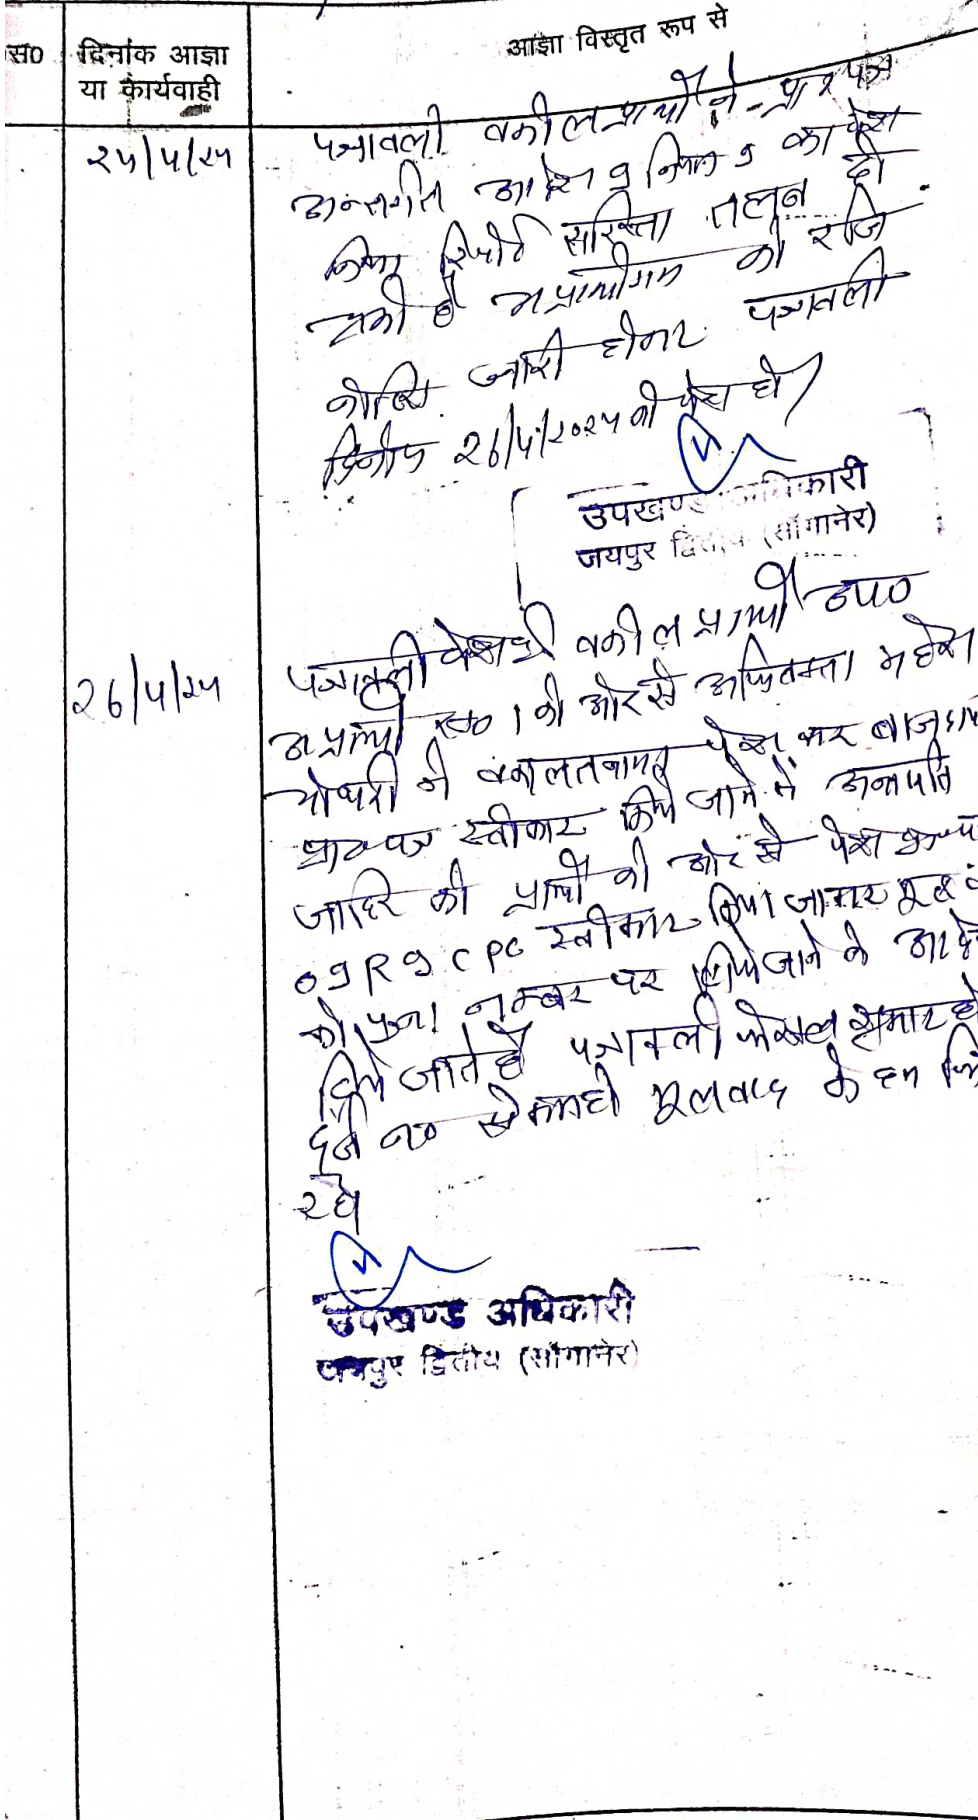 स0
दिनांक आज्ञा
या कार्यवाही
आज्ञा विस्तृत रूप से
२५/५/२५
पत्रावली वकील प्रार्थी ने प्रा० पत्र
अन्तर्गत आदेश 9 नियम 9 का पेश
किया रिपोर्ट सरिस्ता तलब हो
अप्रार्थीगण को रजि
नोटिस जारी होकर पत्रावली
दिनांक 26/५/२०२५ को पेश हो
उपखण्ड अधिकारी
जयपुर द्वितीय (सॉंगानेर)
२6/५/२५
पत्रावली पेश हुई वकील प्रार्थी उप०
अप्रार्थी स० 1 की ओर से अधिवक्ता महेश
चौधरी ने वकालतनामा पेश कर
प्रा० पत्र स्वीकार किये जाने में अनापति
जाहिर की प्रार्थी की ओर से पेश
O9R9 CPC स्वीकार किया जाकर मूल
को पुनः नम्बर पर लिये जाने के
दिये जाते है पत्रावली फैसल शुमार हो
दर्ज न० से कम हो मूलवाद के
रहे
उपखण्ड अधिकारी
जयपुर द्वितीय (सॉंगानेर)